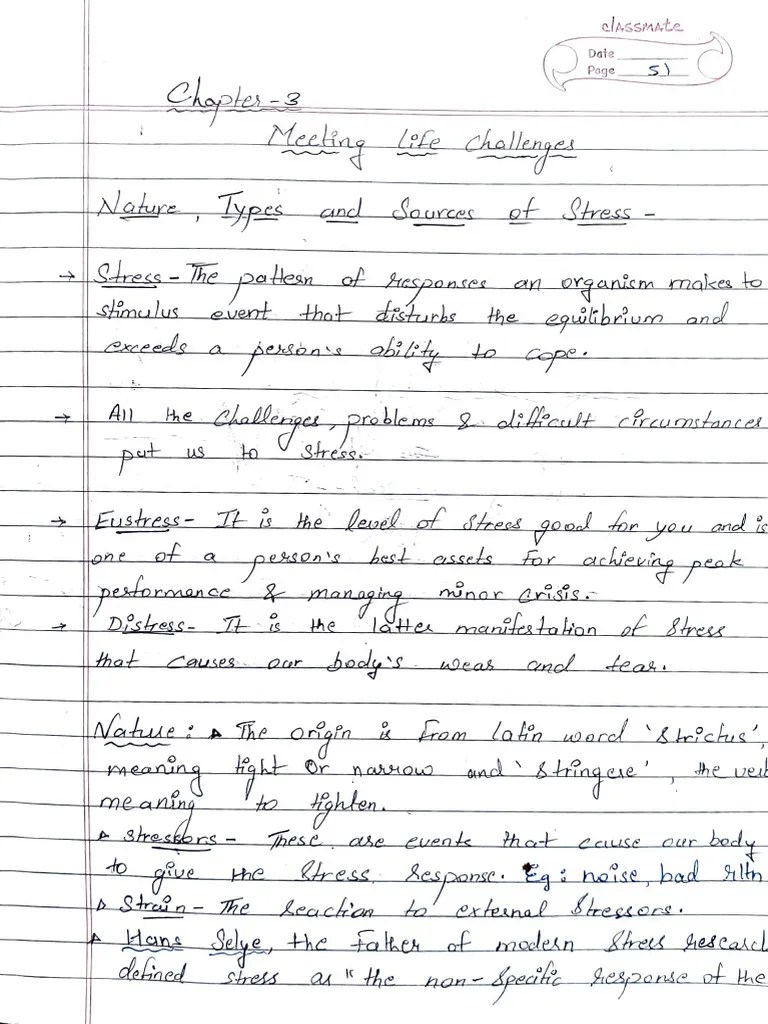 classmate
Date
Page 51
Chapter-3
Meeting Life Challenges
Nature, Types and Sources of Stress -
→ Stress - The pattern of responses an organism makes to
stimulus event that disturbs the equilibrium and
exceeds a person's ability to cope.
→ All the challenges, problems & difficult circumstances
put us to stress.
→ Eustress - It is the level of stress good for you and is
one of a person's best assets for achieving peak
performance & managing minor crisis.
→ Distress - It is the latter manifestation of stress
that causes our body's wear and tear.
Nature: ▸ The origin is from latin word 'Strictus',
meaning tight or narrow and 'Stringere', the verb
meaning to tighten.
▸ Stressors - These are events that cause our body
to give the stress response. Eg: noise, bad rltn
▸ Strain - The reaction to external stressors.
▸ Hans Selye, the Father of modern stress research
defined stress as "the non-specific response of the